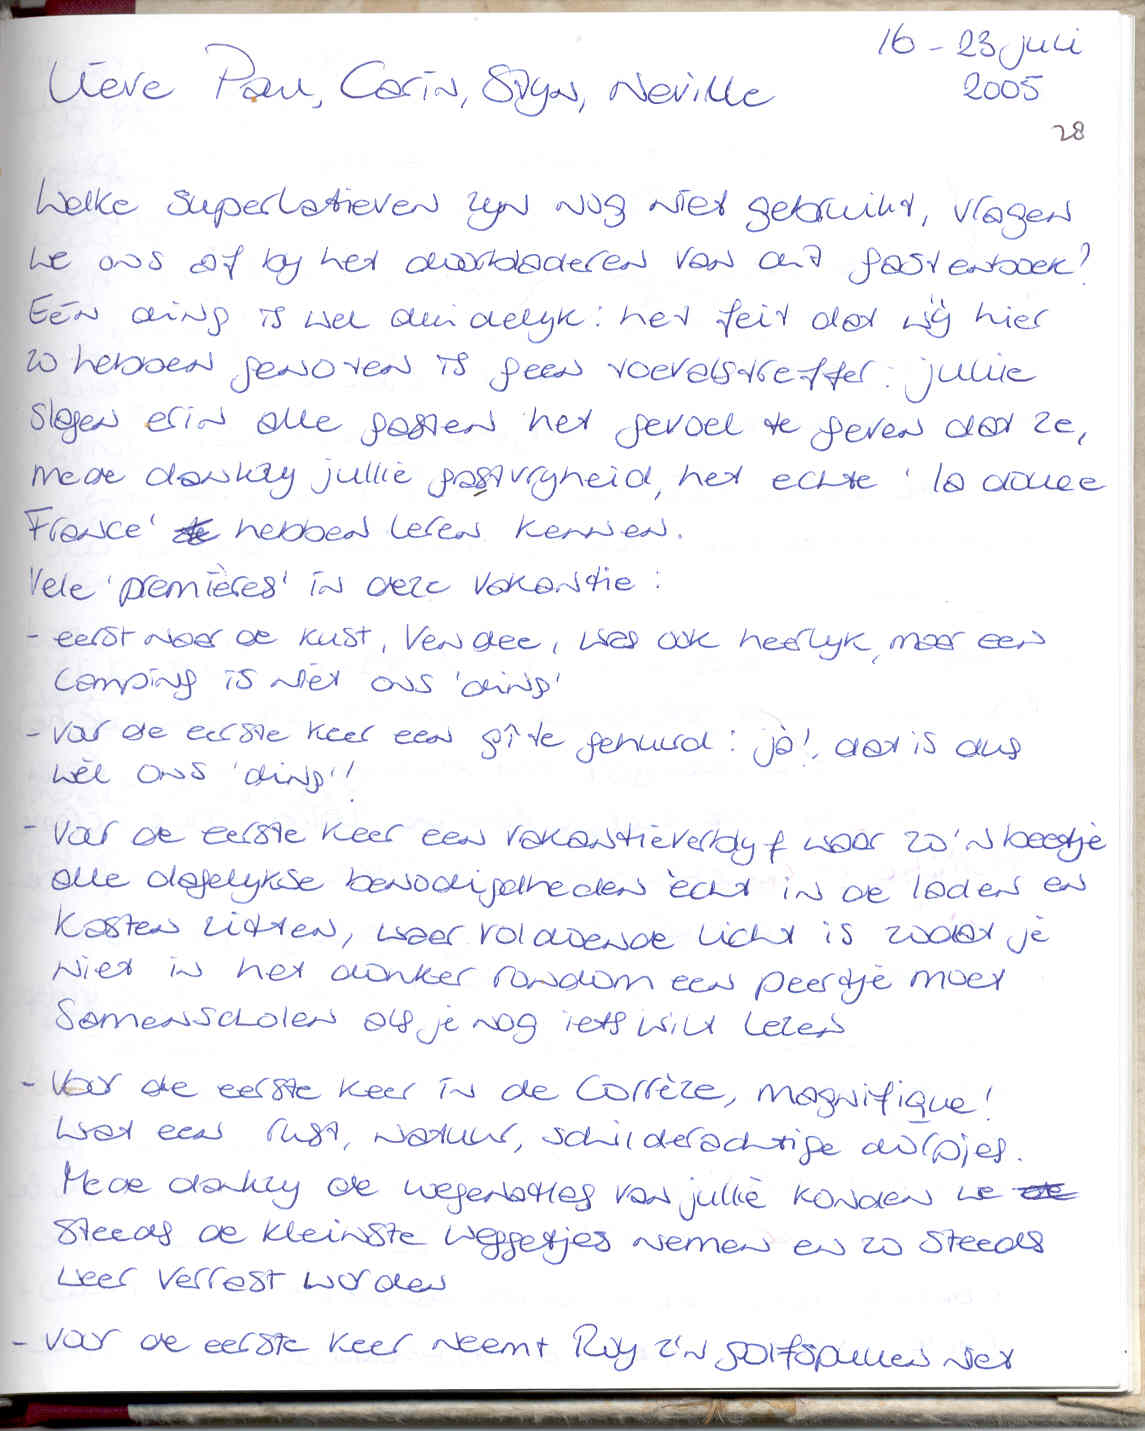 16 - 23 juli
2005
28
Lieve Paul, Carin, Stijn, Neville
Welke superlatieven zijn nog niet gebruikt, vragen
we ons af bij het doorbladeren van dit gastenboek?
Eén ding is wel duidelijk: het feit dat wij hier
zo hebben genoten is geen toevalstreffer: jullie
slagen erin alle gasten het gevoel te geven dat ze,
mede dankzij jullie gastvrijheid, het echte 'la douce
France' hebben leren kennen.
Vele 'premières' in deze vakantie:
- eerst naar de kust, Vendee, was ook heerlijk, maar een
camping is niet ons 'ding'
- voor de eerste keer een gîte gehuurd: jà!, dat is dus
wèl ons 'ding'!
- voor de eerste keer een vakantieverblijf waar zo'n beetje
alle dagelijkse benodigdheden ècht in de laden en
kasten zitten, waar voldoende licht is zodat je
niet in het donker rondom een peertje moet
samenscholen als je nog iets wilt lezen
- Voor de eerste keer in de Corrèze, magnifique!
Wat een rust, natuur, schilderachtige dorpjes.
Mede dankzij de wegenatlas van jullie konden we
steeds de kleinste weggetjes nemen en zo steeds
weer verrast worden
- voor de eerste keer neemt Roy z'n golfspullen niet